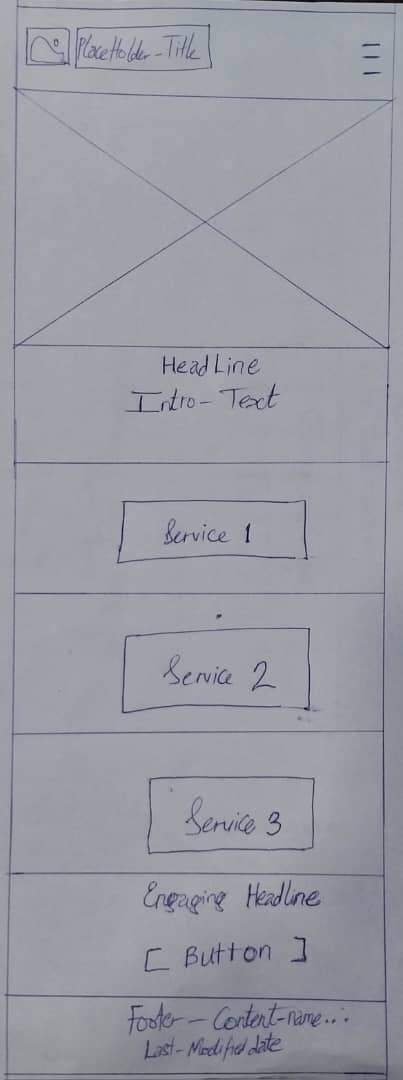 PlaceHolder-Title
HeadLine
Intro-Text
Service 1
Service 2
Service 3
Engaging Headline
[ Button ]
Footer - Content-name...
Last-Modified date